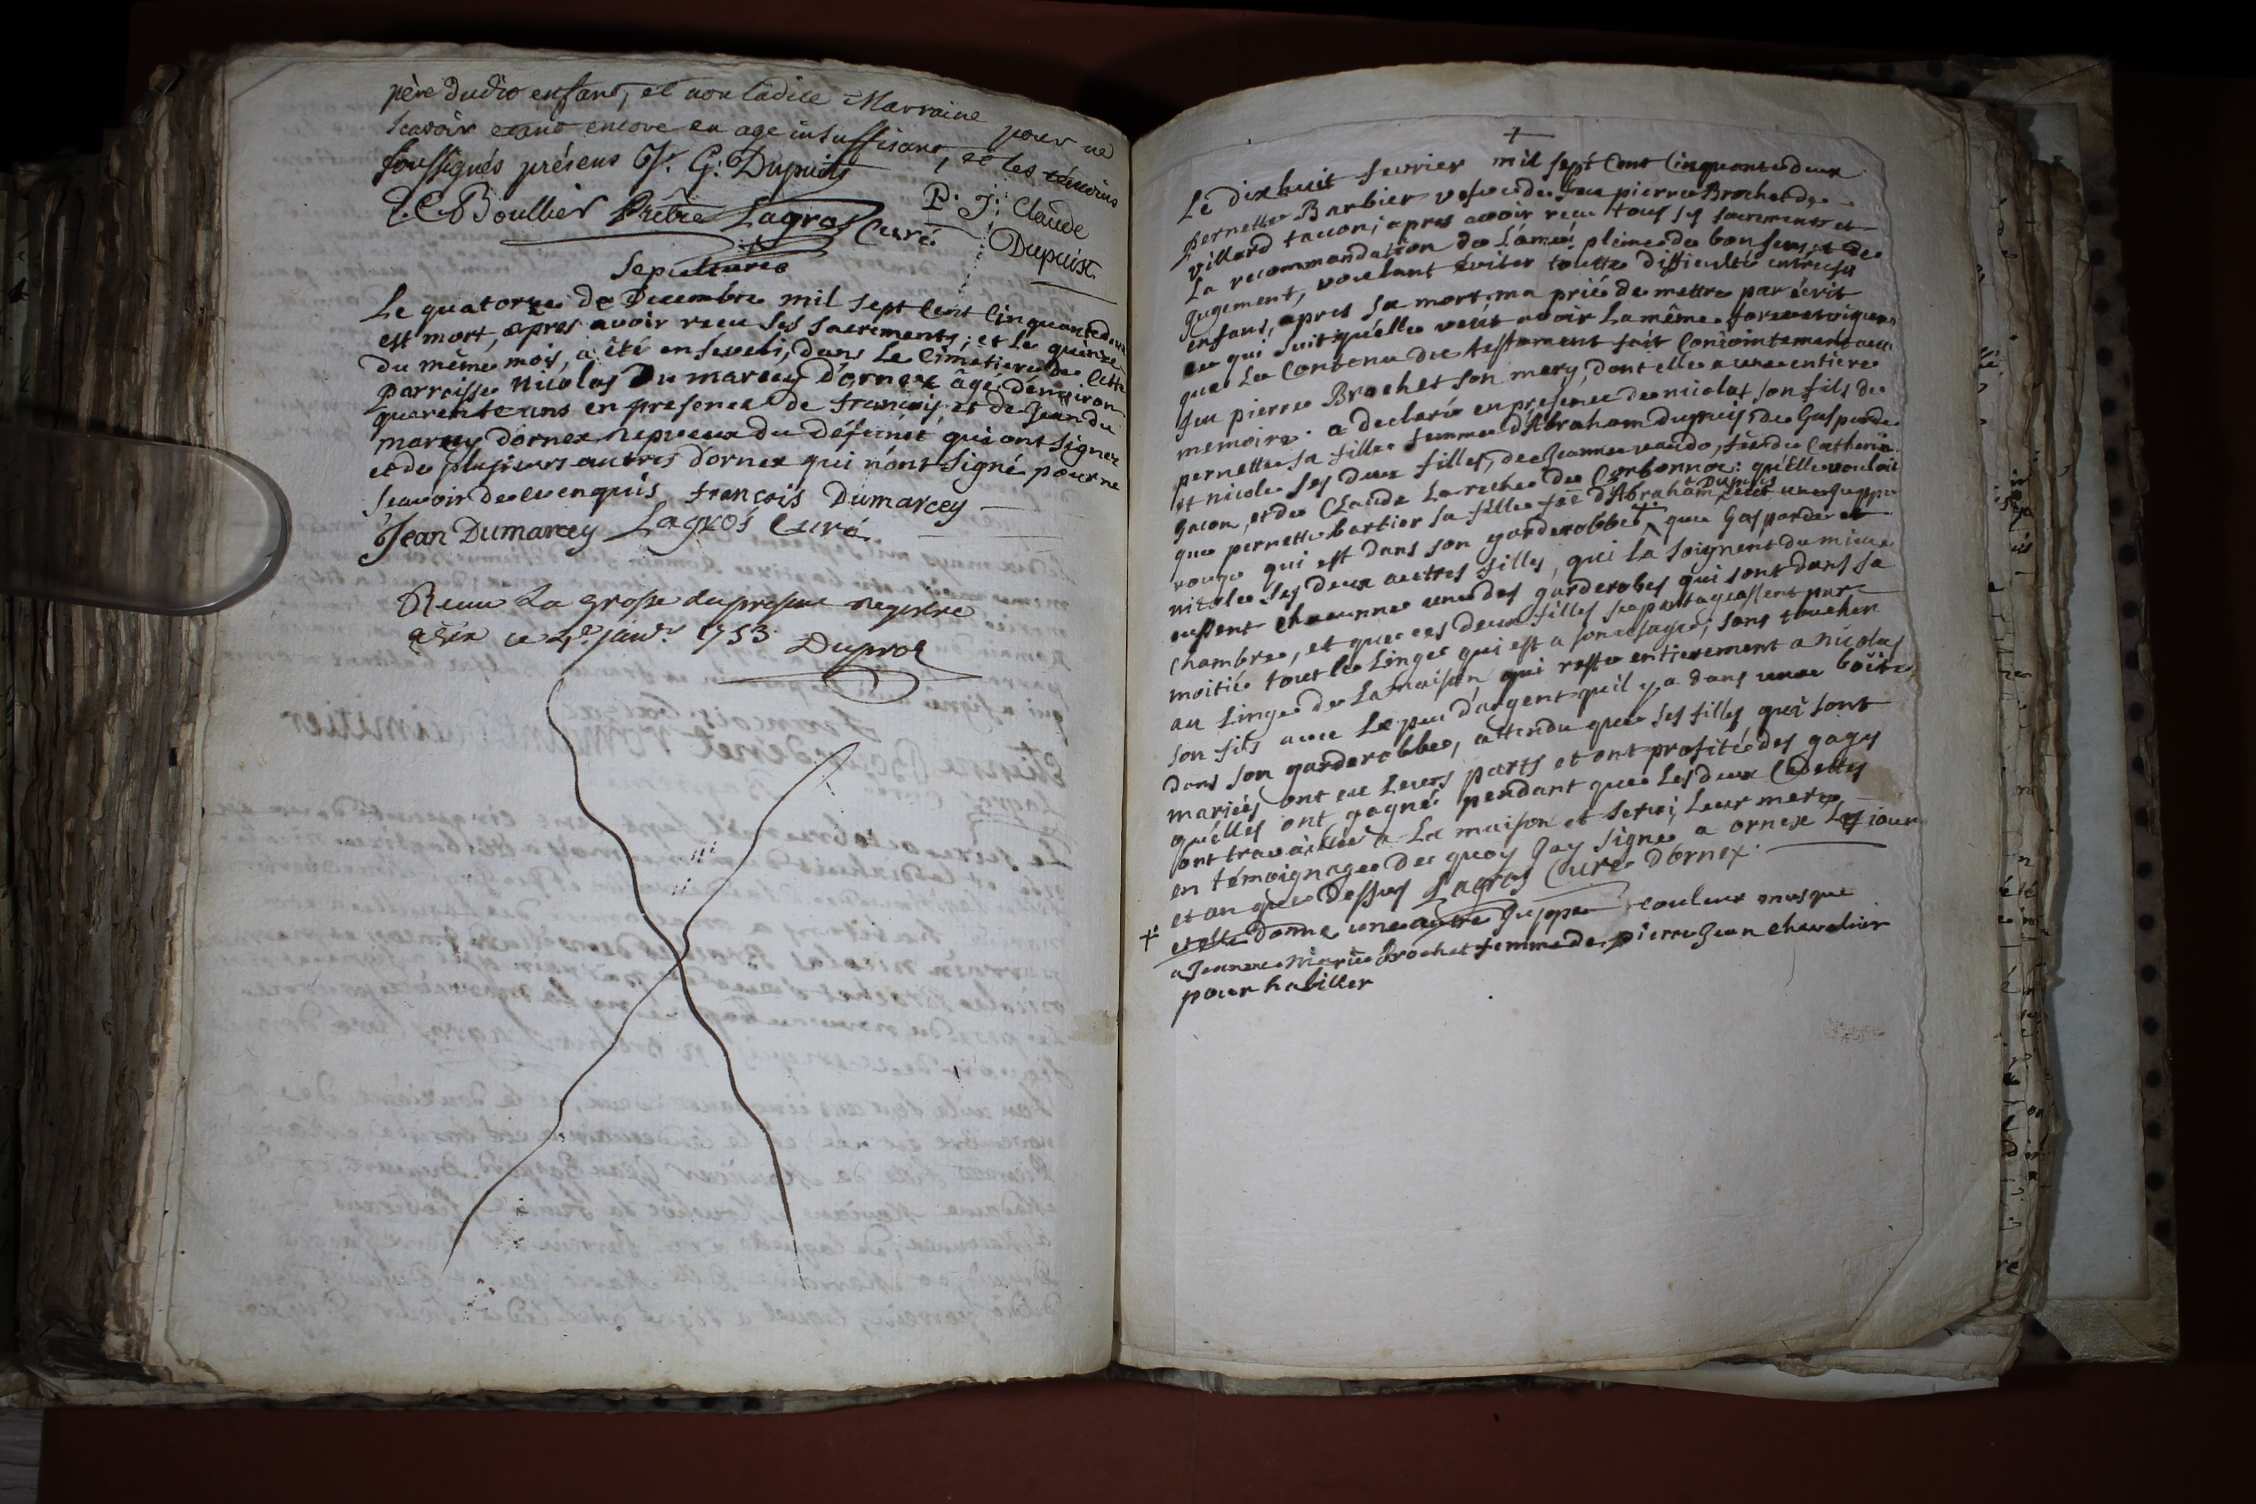 père dudit enfant, et non ladite Marraine pour ne
scavoir etant encore en age insuffisant, et les témoins
soussignés présens J. G. Dupuits
P. J. Claude
Dupuist
J. C. Boullier Prêtre Lagros Curé
Sepulture
Le quatorze de Decembre mil sept cent cinquantedeux
est mort, apres avoir receu ses sacrements, et le quinze
du même mois, a été enseveli, dans le cimetiere de cette
parroisse Nicolas Dumarcey d'ornex âgé denviron
quarente ans en presence de françois et de Jean du
marcey d'ornex nepveux du défunct qui ont signer
et de plusieurs autres d'ornex qui n'ont signé pour ne
scavoir de ce enquis françois Dumarcey
Jean Dumarcey Lagros Curé
Receu La grosse du present registre
a Gex ce 4e janvr 1753
Duproz
+
Le dixhuit fevrier mil sept cent cinquantedeux
pernette Barbier vefve de feu pierre Brochet de
villard taccon; apres avoir receu tous ses sacrements et
la recommandation de L'âme; pleine de bon sens et de
jugement, voulant éviter toutte difficulté entre ses
enfans, apres sa mort, ma prié de mettre par écrit
ce qui suit qu'elle veut avoir la même force et vigueur
que Le Contenu du testament fait conjointement avec
feu pierre Brochet son mary, dont elle a une entiere
memoire. a declaré en presence de nicolas son fils de
pernette sa fille femme d'Abraham dupuis, de Gasparde
et nicole ses deux filles, de Jeanne vando, fée de Catherin
Gacon, et de Claude Laroche de Corbonnoz: qu'Elle vouloit
que pernette barbier sa fille fée d'Abraham Dupuis eut une juppe
rouge qui est dans son garderobbe + que Gasparde et
nicole ses deux autres filles, qui la soignent du mieux
eussent chacunne une des garderobes qui sont dans sa
chambre, et que ces deux filles se partageassent par
moitié tout le Linge qui est a son usage, sans toucher
au Linge de La maison qui reste entierement a nicolas
son fils avec Le peu d'argent qu'il y a dans une boîte
dans son garderobbe, attendu que ses filles qui sont
mariées ont eu Leurs parts et ont profité des gages
qu'elles ont gagné pendant que Les deux Cadettes
ont travaillé a La maison et servi Leur mere,
en témoignage de quoy Jay signé a ornex Les jour
et an que Dessus Lagros Curé D'ornex.
+ et elle donne une autre Juppe couleur musque
a Jeanne Marie Brochet femme de pierre Jean chevalier
pour habiller